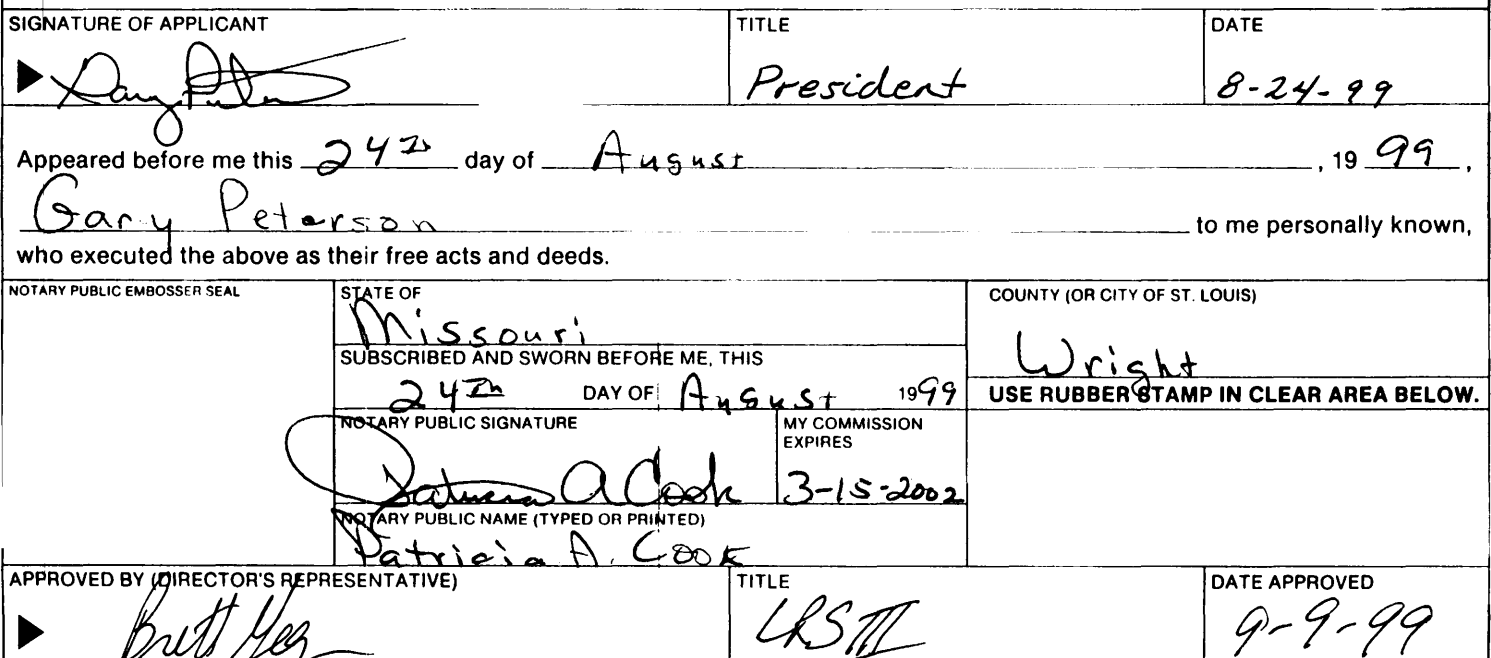 SIGNATURE OF APPLICANT TITLE DATE
Gary Peterson President 8-24-99
Appeared before me this 24th day of August , 19 99 ,
Gary Peterson to me personally known,
who executed the above as their free acts and deeds.
NOTARY PUBLIC EMBOSSER SEAL STATE OF COUNTY (OR CITY OF ST. LOUIS)
Missouri Wright
SUBSCRIBED AND SWORN BEFORE ME, THIS
24th DAY OF August 1999 USE RUBBER STAMP IN CLEAR AREA BELOW.
NOTARY PUBLIC SIGNATURE MY COMMISSION
EXPIRES
Patricia A Cook 3-15-2002
NOTARY PUBLIC NAME (TYPED OR PRINTED)
Patricia A. Cook
APPROVED BY (DIRECTOR'S REPRESENTATIVE) TITLE DATE APPROVED
Brett 9-9-99